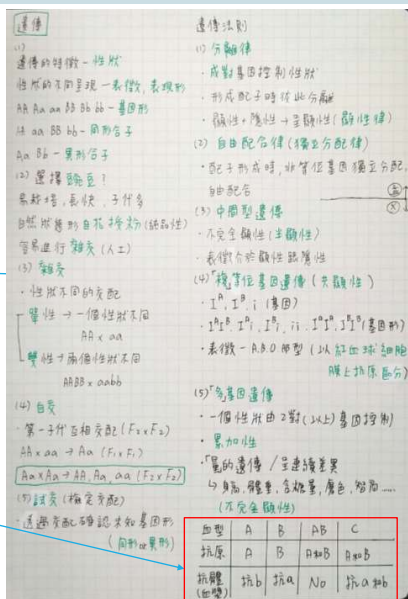 遺傳
(1)
遺傳的特徵－性狀
性狀的不同呈現－表徵,表現形
AA Aa aa BB Bb bb－基因形
AA aa BB bb－同形合子
Aa Bb－異形合子
(2) 選擇豌豆?
易栽培,長快,子代多
自然狀態形自花授粉(純品性)
容易進行雜交(人工)
(3) 雜交
·性狀不同的交配
單性→一個性狀不同
AA x aa
雙性→兩個性狀不同
AABB x aabb
(4) 自交
·第一子代互相交配(F₂xF₂)
AA x aa → Aa (F₁xF₁)
Aa x Aa → AA, Aa, aa (F₂xF₂)
(5) 試交(檢定交配)
·透過交配確認未知基因形
(同形or異形)
遺傳法則
(1) 分離律
·成對基因控制性狀
·形成配子時彼此分離
·顯性+隱性→呈顯性(顯性律)
(2) 自由配合律(獨立分配律)
·配子形成時,非等位基因獨立分配,
自由配合
(3) 中間型遺傳
·不完全顯性(半顯性)
·表徵介於顯性跟隱性
(4) 複等位基因遺傳(共顯性)
·Iᴬ, Iᴮ, i (基因)
·IᴬIᴮ, Iᴬi, Iᴮi, ii, IᴬIᴬ, IᴮIᴮ(基因形)
·表徵－A.B.O血型(以紅血球細胞
膜上抗原區分)
(5) 多基因遺傳
·一個性狀由2對(以上)基因控制
·累加性
·量的遺傳/呈連續差異
↳身高,體重,含糖量,膚色,智商……
(不完全顯性)
血型 A B AB C
抗原 A B A和B A和B
抗體 抗b 抗a No 抗a和b
(血漿)